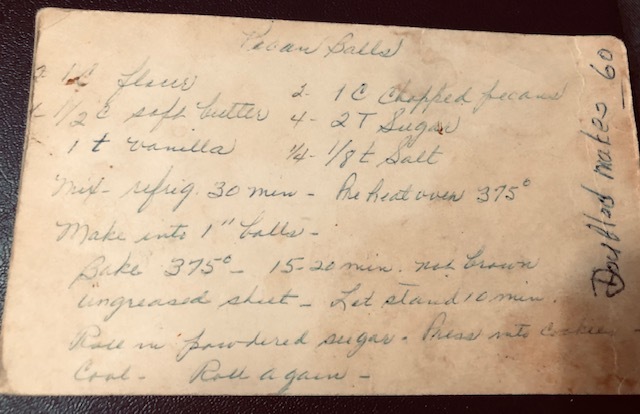 Pecan Balls
2 1 C flour
2 - 1 C Chopped pecans
1/2 C soft butter
4 - 2 T Sugar
1 t Vanilla
1/4 - 1/8 t Salt
Mix - refrig. 30 min - Pre heat oven 375°
Make into 1" balls -
Bake 375° - 15-20 min. not brown
ungreased sheet - Let stand 10 min.
Roll in powdered sugar. Press into cookie
Cool - Roll again -
Doubled makes 60